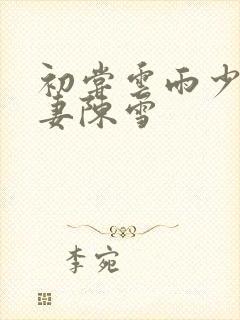 初尝雲雨少
妻陳雪
李宛